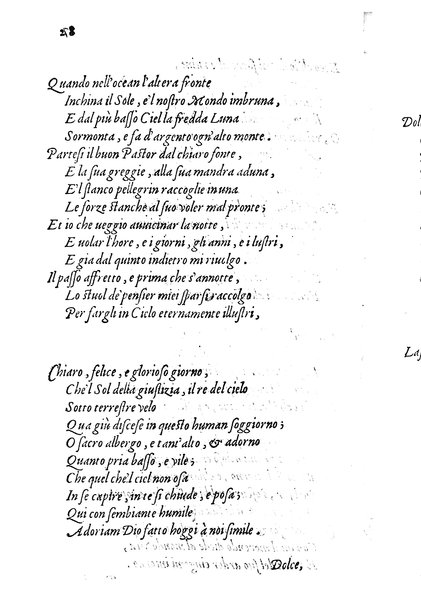 28
Quando nell'ocean l'altera fronte
Inchina il Sole, e'l nostro Mondo imbruna,
E dal più basso Ciel la fredda Luna
Sormonta, e fa d'argento ogn'alto monte.
Partesi il buon Pastor dal chiaro fonte,
E la sua greggie, alla sua mandra aduna,
E'l stanco pellegrin raccoglie in una
Le forze stanche al suo voler mal pronte;
Et io che ueggio auuicinar la notte,
E uolar l'hore, e i giorni, gli anni, e i lustri,
E gia dal quinto indietro mi riuolgo.
Il passo affretto, e prima che s'annotte,
Lo stuol de' pensier miei sparsi raccolgo
Per fargli in Cielo eternamente illustri,
Chiaro, felice, e glorioso giorno,
Che'l Sol della giustizia, il re del cielo
Sotto terrestre velo
Qua giù discese in questo human soggiorno;
O sacro albergo, e tant'alto, & adorno
Quanto pria basso, e vile;
Che quel che'l ciel non osa
In se capire, in te si chiude, e posa;
Qui con sembiante humile
Adoriam Dio fatto hoggi à noi simile.
Dolce,
Dol
La